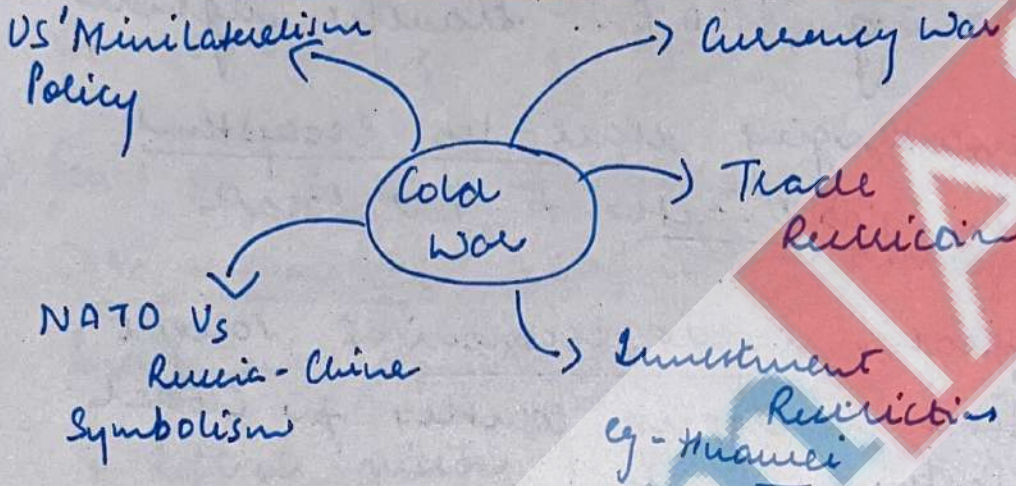 US' Minilateralism
Policy
Currency War
Cold
War
Trade
Restrictions
NATO Vs
Russia-China
Symbolism
Investment
Restrictions
eg - Huawei